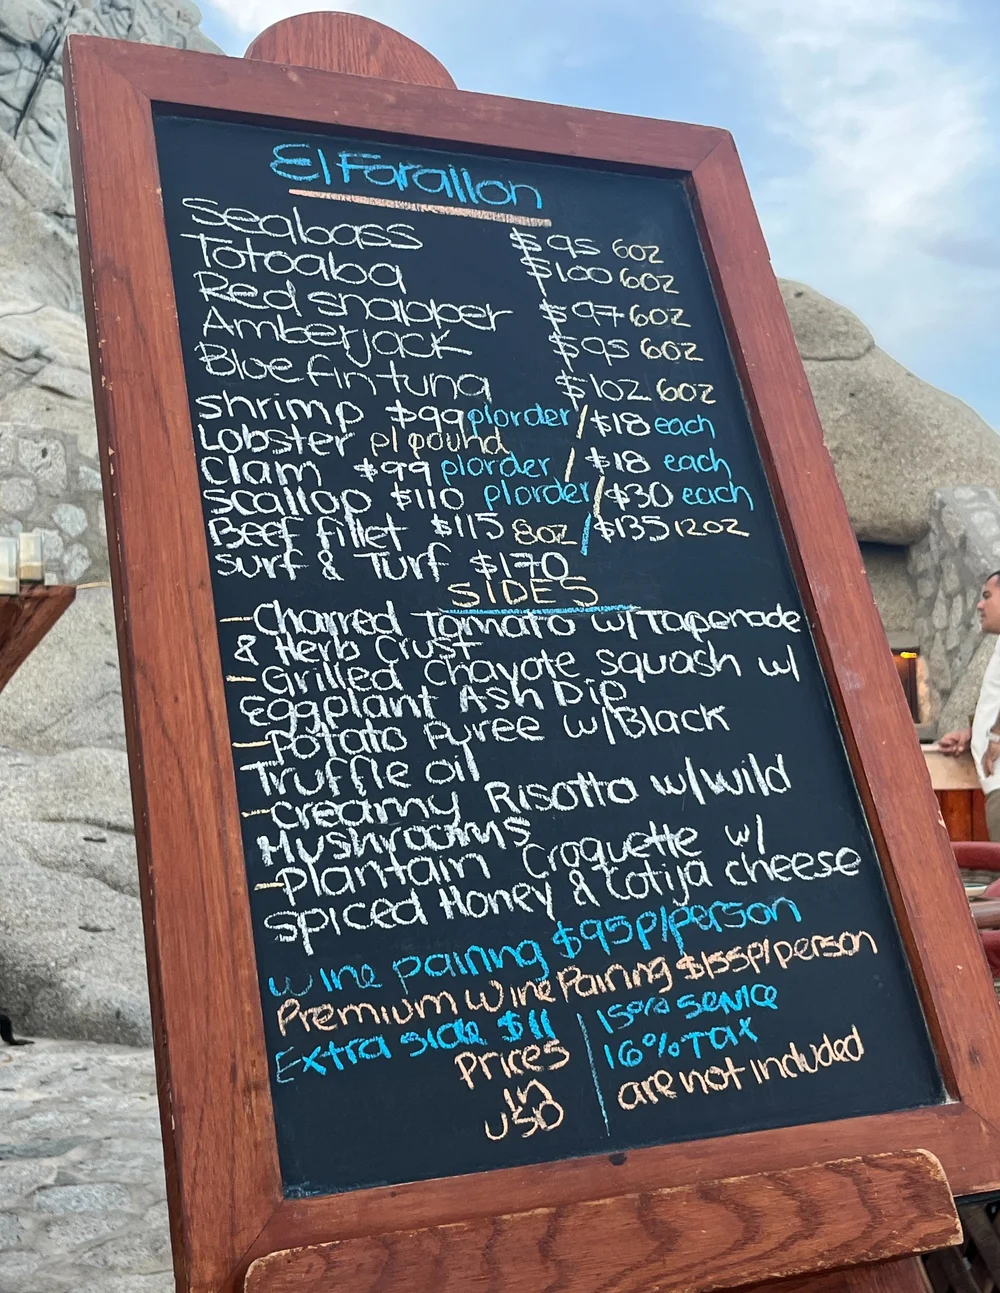 El Farallon
Seabass $95 6oz
Totoaba $100 6oz
Red snapper $97 6oz
Amberjack $95 6oz
Blue fin tuna $102 6oz
shrimp $99 p/order / $18 each
Lobster p/pound
Clam $99 p/order / $18 each
scallop $110 p/order / $30 each
Beef fillet $115 8oz / $135 12oz
surf & Turf $170
SIDES
- Charred Tomato w/ Tapenade
& Herb Crust
- Grilled Chayote squash w/
Eggplant Ash Dip
- Potato Puree w/Black
Truffle oil
- creamy Risotto w/wild
Mushrooms
- Plantain Croquette w/
spiced Honey & Cotija cheese
wine pairing $95 p/person
Premium wine Pairing $155 p/person
Extra side $11
Prices
in
USD
15% service
16% TAX
are not included